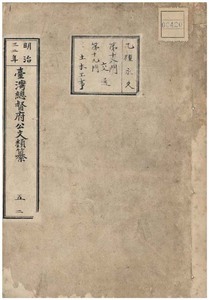 乙種永久
第十八門
交通
第十九門
土木工事
明治
三二年
臺灣總督府公文類纂
五二